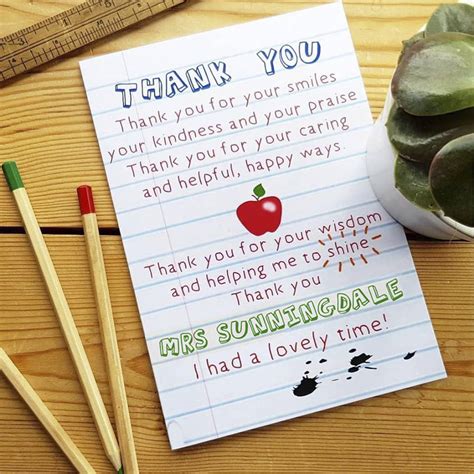 THANK YOU
Thank you for your smiles
your kindness and your praise
Thank you for your caring
and helpful, happy ways.
Thank you for your wisdom
and helping me to shine
Thank you
MRS SUNNINGDALE
I had a lovely time!